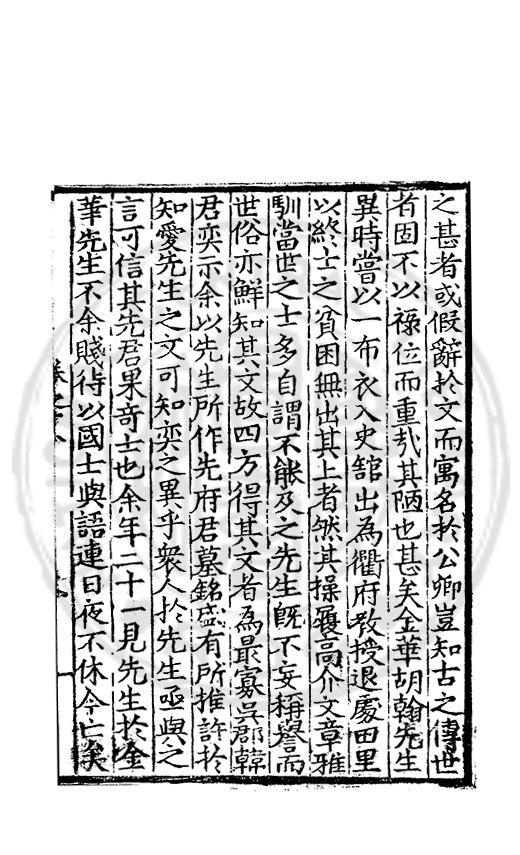 之甚者或假辭於文而寓名於公卿豈知古之傳世
者固不以祿位而重哉其陋也甚矣金華胡翰先生
異時嘗以一布衣入史館出為衢府教授退處田里
以終士之貧困無出其上者然其操履高介文章雅
馴當世之士多自謂不能及之先生既不妄稱譽而
世俗亦鮮知其文故四方得其文者為最寡吳郡韓
君奕示余以先生所作先府君墓銘盛有所推許於
知愛先生之文可知奕之異乎衆人於先生亟與之
言可信其先君果奇士也余年二十一見先生於金
華先生不余賤待以國士與語連日夜不休今亡矣